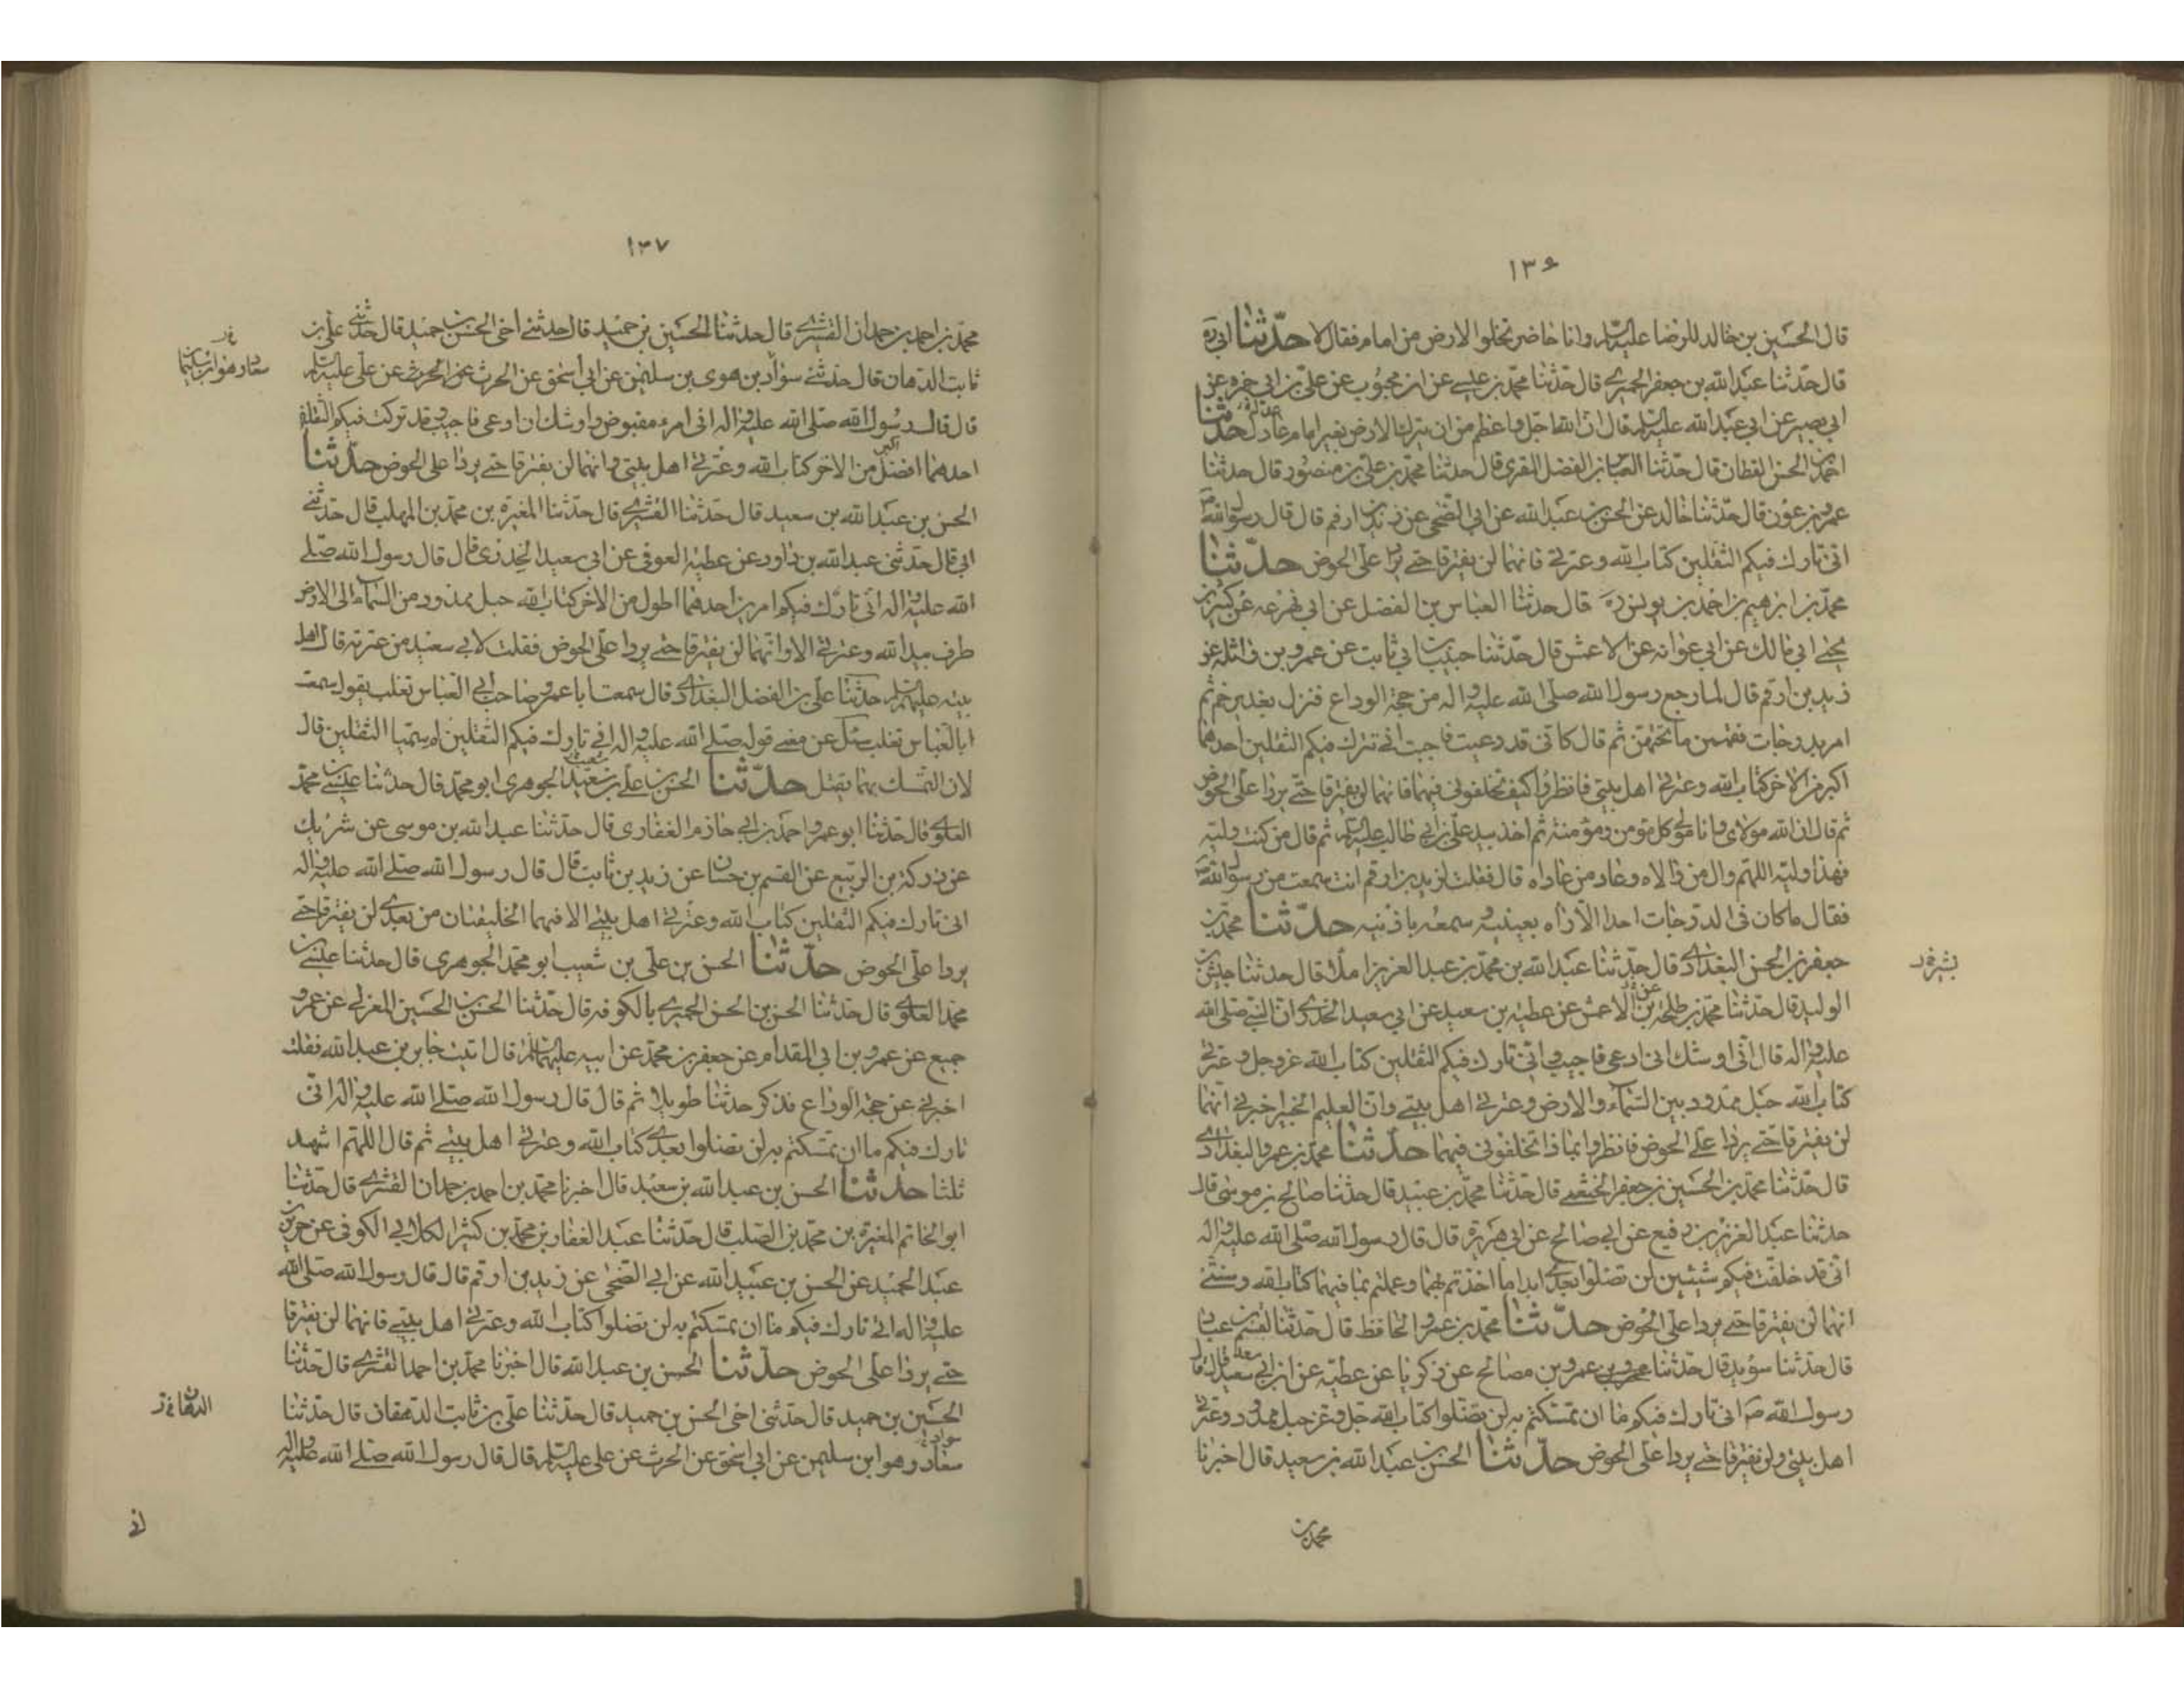 ١٣٦
قال الحسين بن خالد للرضا عليه السلام وانا حاضر تخلوا الارض من امام فقال لا حدّثنا ابي ره
قال حدثنا عبد الله بن جعفر الحميري قال حدثنا محمد بن عيسى عن ابن محبوب عن علي بن ابي حمزه عن
ابي بصير عن ابي عبد الله عليه السلم قال ان الله اجل واعظم من ان يترك الارض بغير امام عادل حدثنا
احمد بن الحسن القطان قال حدثنا العباس بن الفضل المقري قال حدثنا محمد بن علي بن منصور قال حدثنا
عمرو بن عون قال حدّثنا خالد عن الحسن بن عبد الله عن ابي الضحى عن زيد بن ارقم قال قال رسول الله ص
انى تارك فيكم الثقلين كتاب الله وعترتي فانهما لن يفترقا حتى يردا على الحوض حدّثنا
محمد بن ابرهيم بن احمد بن يونس ره قال حدثنا العباس بن الفضل عن ابي زرعه عن كثير بن
يحيى ابي مالك عن ابي عوانه عن الاعمش قال حدّثنا حبيب بن ابي ثابت عن عمرو بن واثلة عن
زيد بن ارقم قال لما رجع رسول الله صلى الله عليه واله من حجة الوداع فنزل بغدير خم ثم
امر بدوحات فقممن ما تحتهن ثم قال كانى قد دعيت فاجبت انى تركت فيكم الثقلين احدهما
اكبر من الاخر كتاب الله وعترتي اهل بيتي فانظروا كيف تخلفونى فيهما فانهما لن يفترقا حتى يردا على الحوض
ثم قال ان الله مولاى وانا مولى كل مؤمن ومؤمنة ثم اخذ بيد علي بن ابي طالب عليه السلم ثم قال من كنت وليه
فهذا وليه اللهم وال من والاه وعاد من عاداه قال فقلت لزيد بن ارقم انت سمعت من رسول الله ص
فقال ما كان في الدوحات احدا الا رآه بعينيه وسمعه باذنيه حدّثنا محمد بن
جعفر بن الحسن البغدادى قال حدّثنا عبد الله بن محمد بن عبد العزيز املا قال حدثنا جيش بن
بشر خ‌د
الوليد قال حدثنا محمد بن طلحه عن الاعمش عن عطية بن سعيد عن ابي سعيد الخدرى ان النبي صلى الله
عليه واله قال انّى اوشك ان ادعى فاجيب وانى تارك فيكم الثقلين كتاب الله عزوجل وعترتي
كتاب الله حبل ممدود بين السماء والارض وعترتي اهل بيتي وان العليم الخبير اخبرنى انهما
لن يفترقا حتى يردا على الحوض فانظروا بماذا تخلفونى فيهما حدّثنا محمد بن عمر والبغدادى
قال حدّثنا محمد بن الحسين بن جعفر الخثعمى قال حدّثنا محمد بن عبيد قال حدثنا صالح بن موسى قال
حدثنا عبد العزيز بن رفيع عن ابي صالح عن ابي هريرة قال قال رسول الله صلى الله عليه واله
انى قد خلفت فيكم شيئين لن تضلوا بعدى ابدا ما اخذتم بهما وعملتم بما فيهما كتاب الله وسنتى
انهما لن يفترقا حتى يردا على الحوض حدّثنا محمد بن عمر والحافظ قال حدّثنا القسم بن عباد
قال حدثنا سويد قال حدّثنا عمرو بن صالح عن زكريا عن عطيه عن ابي سعيد قال قال
رسول الله ص انى تارك فيكم ما ان تمسكتم به لن تضلوا كتاب الله جل وعز حبل ممدود وعترتي
اهل بيتي ولن يفترقا حتى يردا على الحوض حدّثنا الحسن بن عبد الله بن سعيد قال اخبرنا
محمد بن
١٣٧
محمد بن احمد بن حمدان القشيرى قال حدثنا الحسين بن حميد قال حدثنى اخى الحسن بن حميد قال حدّثنى على بن
ثابت الدهان قال حدثنى سواد بن سليمن عن ابي اسحق عن الحرث عن علي عليه السلم
قال قال رسول الله صلى الله عليه واله انى امرء مقبوض واوشك ان ادعى فاجيب وقد تركت فيكم الثقلين
احدهما افضل من الاخر كتاب الله وعترتي اهل بيتي وانهما لن يفترقا حتى يردا على الحوض حدّثنا
الحسن بن عبد الله بن سعيد قال حدّثنا القشيرى قال حدّثنا المغيره بن محمد بن المهلب قال حدثنى
ابي قال حدثنى عبد الله بن داود عن عطية العوفى عن ابي سعيد الخدرى قال قال رسول الله صلى
الله عليه واله انى تارك فيكم امرين احدهما اطول من الاخر كتاب الله حبل ممدود من السماء الى الارض
طرف بيد الله وعترتي الا وانهما لن يفترقا حتى يردا على الحوض فقلت لابى سعيد من عترته قال اهل
بيته عليهم السلم حدثنا على بن الفضل البغدادى قال سمعت ابا عمر صاحب ابي العباس تغلب يقول سمعت
ابا العباس تغلب سئل عن معنى قوله صلى الله عليه واله انى تارك فيكم الثقلين لم سميا الثقلين قال
لان التمسك بهما ثقيل حدّثنا الحسن بن علي بن شعيب الجوهرى ابو محمد قال حدثنا عيسى بن محمد
العلوى قال حدثنا ابو عمرو احمد بن ابي حازم الغفارى قال حدّثنا عبد الله بن موسى عن شريك
عن ركين بن الربيع عن القسم بن حسان عن زيد بن ثابت قال قال رسول الله صلى الله عليه واله
انى تارك فيكم الثقلين كتاب الله وعترتي اهل بيتى الا فيهما الخليفتان من بعدى لن يفترقا حتى
يردا على الحوض حدّثنا الحسن بن على بن شعيب ابو محمد الجوهرى قال حدثنا عيسى بن
محمد العلوى قال حدّثنا الحسن بن الحسن الحميرى بالكوفه قال حدّثنا الحسن بن الحسين المغربى عن عمرو
جميع عن عمرو بن ابى المقدام عن جعفر بن محمد عن ابيه عليهما السلم قال اتيت جابر بن عبد الله فقلت
اخبرنى عن حجة الوداع فذكر حدثنا طويلا ثم قال قال رسول الله صلى الله عليه واله انى
تارك فيكم ما ان تمسكتم به لن تضلوا بعدى كتاب الله وعترتي اهل بيتى ثم قال اللهم اشهد
ثلثا حدّثنا الحسن بن عبد الله بن سعيد قال اخبرنا محمد بن احمد بن حمدان القشيرى قال حدّثنا
ابو الحاتم المغيره بن محمد بن المهلب قال حدّثنا عبد الغفار بن محمد بن كثير الكلابى الكوفى عن جرير بن
عبد الحميد عن الحسن بن عبيد الله عن ابي الضحى عن زيد بن ارقم قال قال رسول الله صلى الله
عليه واله انى تارك فيكم ما ان تمسكتم به لن تضلوا كتاب الله وعترتي اهل بيتى فانهما لن يفترقا
حتى يردا على الحوض حدّثنا الحسن بن عبد الله قال اخبرنا محمد بن احمد القشيرى قال حدّثنا
الحسين بن حميد قال حدثنى اخى الحسن بن حميد قال حدّثنا على بن ثابت الدهقان قال حدّثنا
الدهان خ‌د
سعاد وهو ابن سليمن عن ابي اسحق عن الحرث عن على عليه السلم قال قال رسول الله صلى الله عليه واله
انى